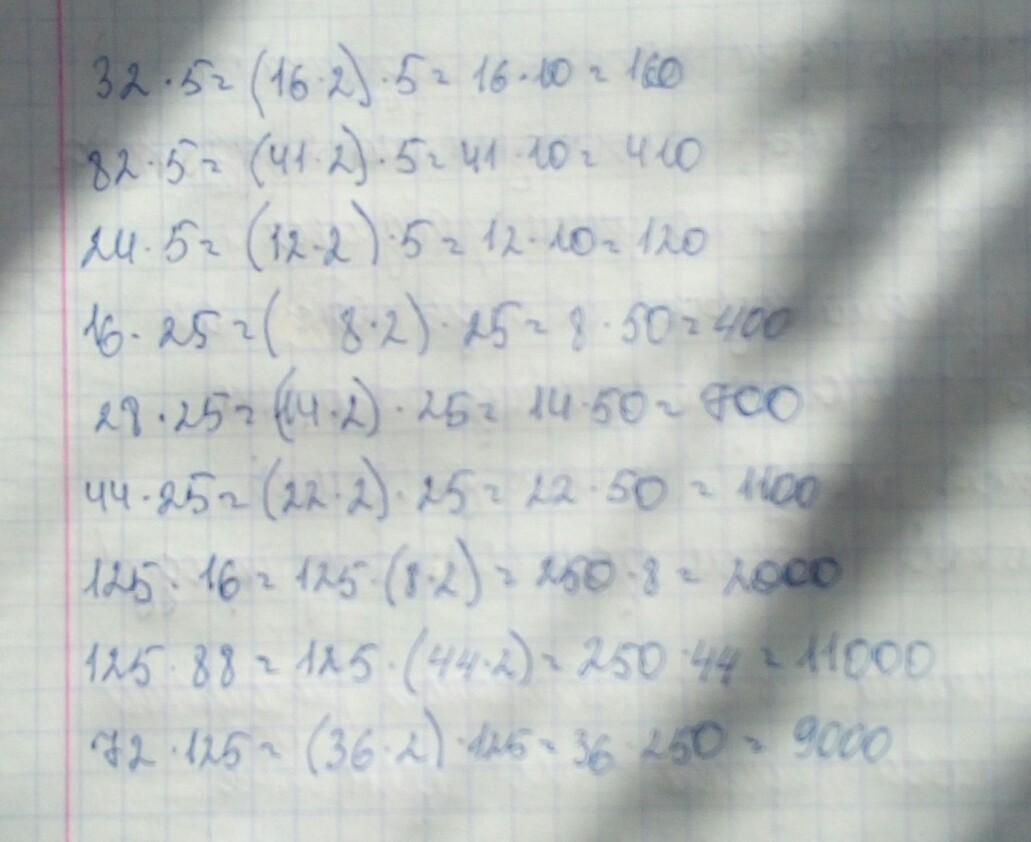 32·5=(16·2)·5=16·10=160
82·5=(41·2)·5=41·10=410
24·5=(12·2)·5=12·10=120
16·25=(8·2)·25=8·50=400
28·25=(14·2)·25=14·50=700
44·25=(22·2)·25=22·50=1100
125·16=125·(8·2)=250·8=2000
125·88=125·(44·2)=250·44=11000
72·125=(36·2)·125=36·250=9000